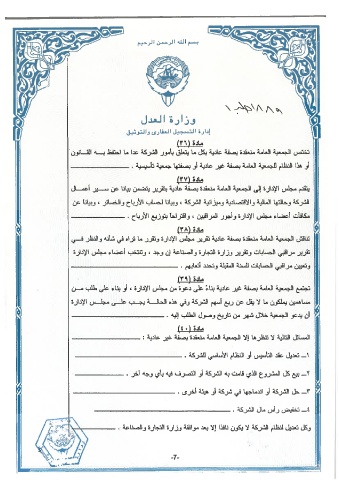 بسم الله الرحمن الرحيم
وزارة العدل
إدارة التسجيل العقارى والتوثيق
مادة (٣٦)
تختص الجمعية العامة منعقدة بصفة عادية بكل ما يتعلق بأمور الشركة عدا ما احتفظ به القانون
أو هذا النظام للجمعية العامة بصفة غير عادية أو بصفتها جمعية تأسيسية .
مادة (٣٧)
يتقدم مجلس الإدارة إلى الجمعية العامة منعقدة بصفة عادية بتقرير يتضمن بيانا عن سير أعمال
شركة وحالتها المالية والاقتصادية وميزانية الشركة وبيانا لحساب الأرباح والخسائر ، وبيانا عن
مكافآت أعضاء مجلس الإدارة وأجور المراقبين ، واقتراحا بتوزيع الأرباح .
مادة (٣٨)
تناقش الجمعية العامة منعقدة بصفة عادية تقرير مجلس الإدارة وتقرر ما تراه في شأنه والنظر في
تقرير مراقبي الحسابات وتقرير وزارة التجارة والصناعة إن وجد ، وتنتخب أعضاء مجلس الإدارة
وتعيين مراقبي الحسابات للسنة المقبلة وتحدد أتعابهم .
مادة (٣٩)
تجتمع الجمعية العامة بصفة غير عادية بناءً على دعوة من مجلس الإدارة ، أو بناء على طلب من
مساهمين يملكون ما لا يقل عن ربع أسهم الشركة وفي هذه الحالة يجب على مجلس الإدارة
أن يدعو الجمعية خلال شهر من تاريخ وصول الطلب إليه .
مادة (٤٠)
المسائل التالية لا تنظرها إلا الجمعية العامة منعقدة بصفة غير عادية :
١ــ تعديل عقد التأسيس أو النظام الأساسي للشركة .
٢ــ بيع كل المشروع الذي قامت به الشركة أو التصرف فيه بأي وجه آخر .
٣ــ حل الشركة أو اندماجها في شركة أو هيئة أخرى .
٤ــ تخفيض رأس مال الشركة .
وكل تعديل لنظام الشركة لا يكون نافذا إلا بعد موافقة وزارة التجارة والصناعة .
-7-